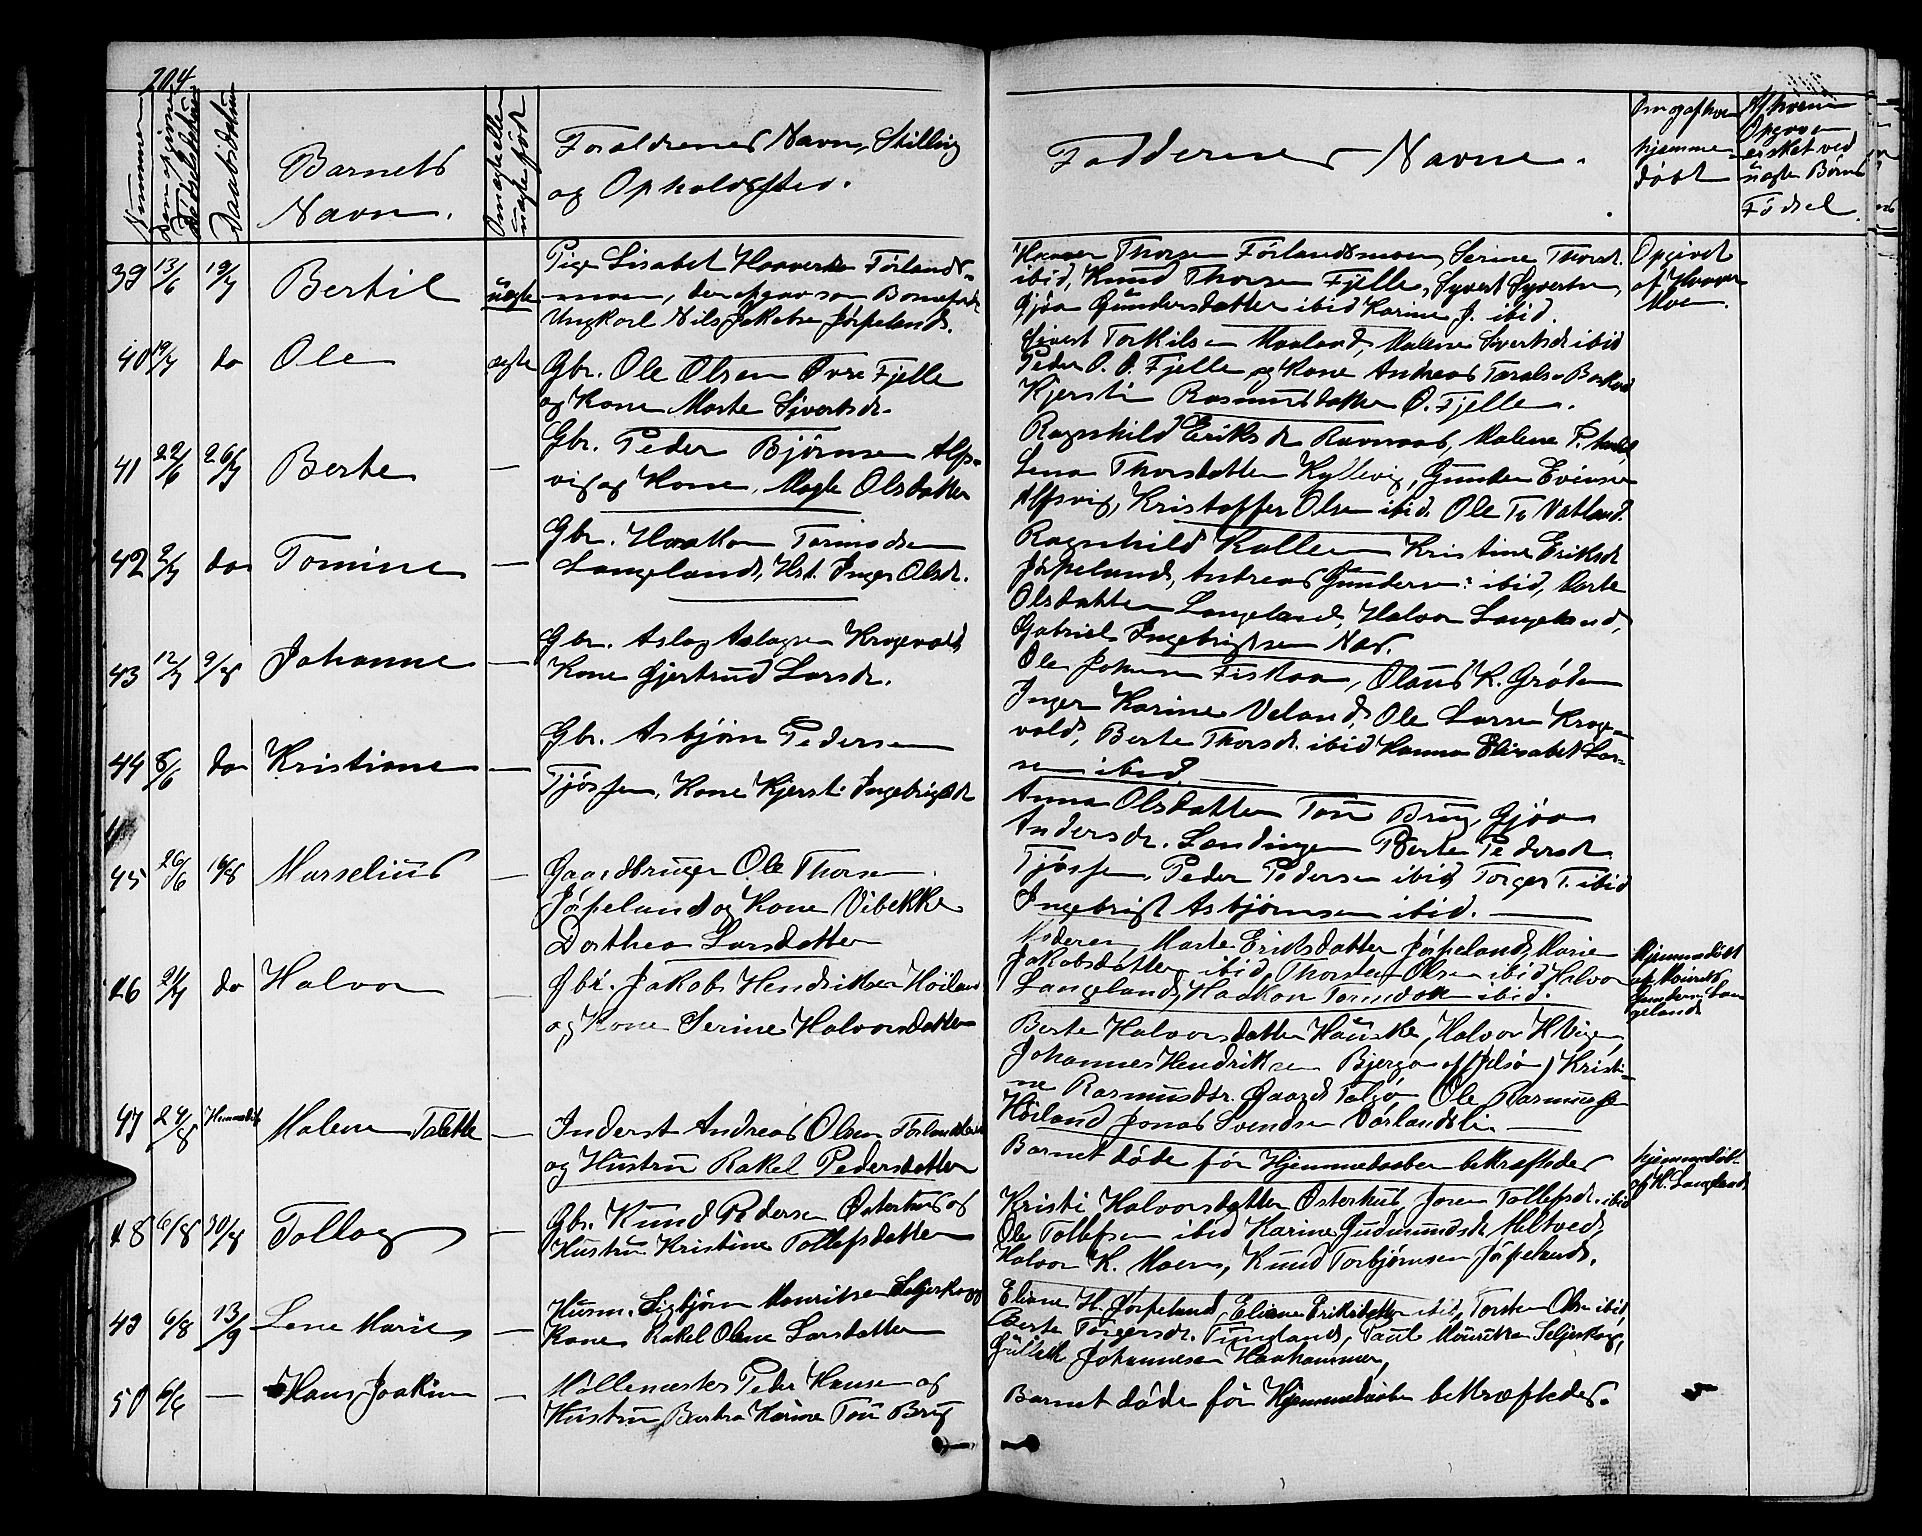 204
Nummer
Fødselsdatum
Daabsdatum
Barnets
Navn.
Om ægte eller
uægte født
Forældrenes Navn, Stilling
og Opholdssted.
Faddernes Navne.
hjemme-
døbt
uægte Børns
Fødsel.
39 13/6 19/7 Bertil uægte
Pige Lisabet Haavers Førlands-
moen, der opgav som Barnefader
Ungkarl Nils Jakobsen Jørpeland.
Haaver Thorsen Førlandsmoen, Serine Thorsd.
ibid, Knud Thorsen Fjelle, Syvert Syvertsen,
Gjøa Gundersdatter ibid Karine J. ibid.
Opgivet
af Haaver
Moen.
40 19/7 do Ole ægte
Gbr. Ole Olsen Øvre Fjelle
og Kone Marte Sivertsdr.
Sivert Torkilsen Maaland, Malene Sivertsdr ibid
Peder O. Ø. Fjelle og Kone Andreas
Kjersti Rasmusdatter Ø. Fjelle.
41 22/6 26/7 Berte —
Gbr. Peder Bjørnsen Alfs-
vig og Kone Magle Olsdatter
Ragnhild Eriksdr Ravnaas, Malene P.
Lena Thorsdatter Kyllevig, Gunder Evensen
Alfsvig, Kristoffer Olsen ibid. Ole T. Vatland.
42 2/7 do Tomine —
Gbr. Haakon Tormodsen
Langeland, Hst. Inger Olsdr.
Ragnhild Kallem Kristine Eriksdr
Jørpeland, Andreas Gunders: ibid, Marte
Olsdatter Langeland, Halvor Langeland,
Gabriel Ingebrigtsen Nas.
43 12/7 9/8 Johanne —
Gbr. Aslag Aslagsen Kragevold
Kone Gjertrud Larsdr.
Ole Johnsen Fiskaa, Olaus K. Grøde
Inger Karine Veland, Ole Larsen Krage-
vold, Berte Thorsdr. ibid Hanna Elisabet Lar-
sen ibid
44 8/6 do Kristiane —
Gbr. Asbjørn Pedersen
Tjøsfen, Kone Kjersti Ingebrigtsdr
Anna Olsdatter Tou Brug, Gjøa
Andersdr. Landingen Berte Pedersdr
Tjøsfen, Peder Pedersen ibid, Torger T. ibid
Ingebrigt Asbjørnsen ibid. —
45 26/6 16/8 Marselius —
Gaardbruger Ole Thorsen
Jørpeland og Kone Vibekke
Dorthea Larsdatter
Moderen, Marte Eriksdatter Jørpeland, Marie
Jakobsdatter ibid, Thorsten Olsen ibid Halvor
Langeland, Haakon Tormodsen ibid.
46 21/7 do Halvor —
Gbr. Jakob Hendriksen Höiland
og Kone Serine Halvorsdatter
Berte Halvorsdatter Hauske, Halvor H Vigen
Johannes Hendriksen Bjerga af Jelsø, Kristi-
ne Rasmusdtr. Gaard Talgø Ole Rasmussen
Höiland Jonas Svendsen Vørlandsli. —
Hjemmedöbt
af
Langeland
47 24/8 Hjemmedøbt Malene Talette —
Inderst Andreas Olsen
og Hustru Rakel Pedersdatter
Barnet døde før Hjemmedaaben bekræftedes
hjemmedøbt
af H. Langeland
48 6/8 30/8 Tollag —
Gbr. Knud Pedersen Østerhus og
Hustru Kristine Tollefsdatter
Kristi Halvorsdatter Østerhus, Joren Tollefsdr. ibid
Ole Tollefsen ibid Karine Gudmundsdr Meltved,
Halvor K. Moen, Knud Torbjørnsen Jørpeland.
49 6/8 13/9 Lene Marie —
Husm. Sigbjørn Mauritsen Seljeskog
Kone Rakel Olene Larsdatter
Eliane H. Jørpeland, Eliane Eriksdatter ibid, Torsten Olsen ibid,
Berte Torgersdr. Tungland, Paul Mouritsen Seljeskog,
Johannesen Haahammer,
50 6/6 — Hans Joakim —
Møllemester Peder Hansen og
Hustru Barbra Karine Tou Brug
Barnet døde før Hjemmedaaben bekræftedes.